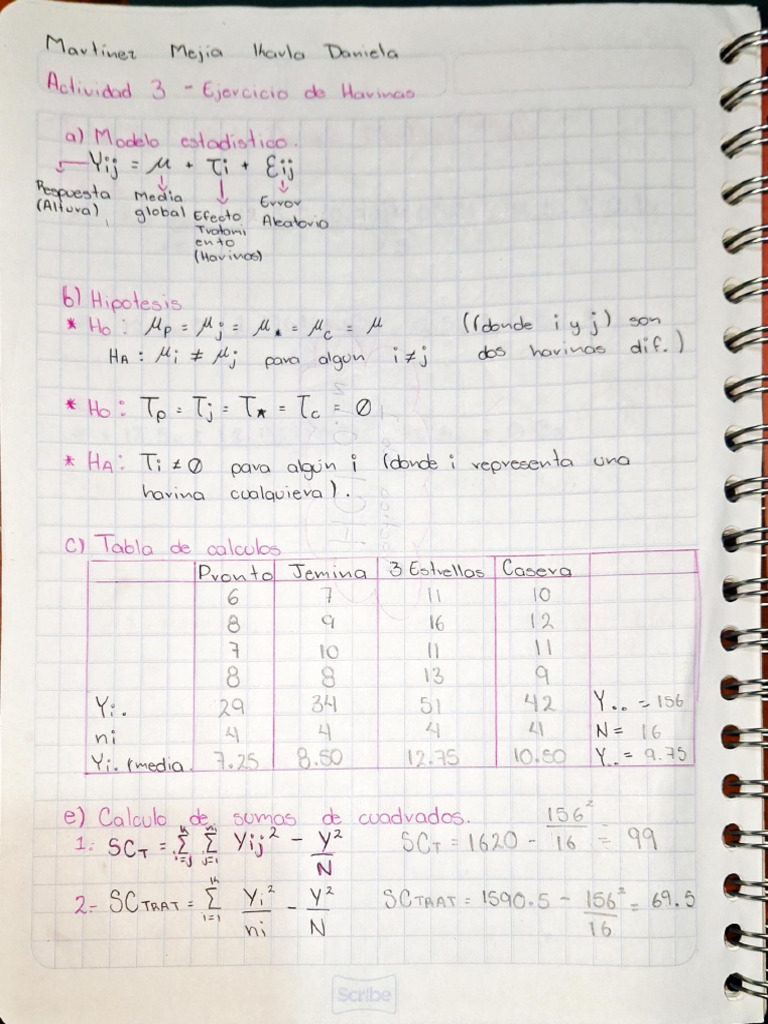 Martínez Mejia Karla Daniela
Actividad 3 - Ejercicio de Harinas
a) Modelo estadístico.
Yij = μ + τi + εij
Respuesta (Altura)
Media global
Efecto Tratami ento (Harinas)
Error Aleatorio
b) Hipotesis
* Ho: μp = μj = μ* = μc = μ ((donde i y j) son
HA: μi ≠ μj para algun i≠j dos harinas dif.)
* Ho: Tp = Tj = T* = Tc = Ø
* HA: Ti ≠ Ø para algún i (donde i representa una
harina cualquiera).
c) Tabla de calculos
Pronto Jemina 3 Estrellas Casera
6 7 11 10
8 9 16 12
7 10 11 11
8 8 13 9
Yi. 29 34 51 42 Y.. = 156
ni 4 4 4 4 N = 16
Yi. (media 7.25 8.50 12.75 10.50 Y.. = 9.75
e) Calculo de sumas de cuadrados.
1: SCT = Σ(i=j, k) Σ(j=1, ni) Yij² - Y²/N SCT = 1620 - 156²/16 = 99
2- SCTRAT = Σ(i=1, k) Yi²/ni - Y²/N SCTRAT = 1590.5 - 156²/16 = 69.5
Scribe